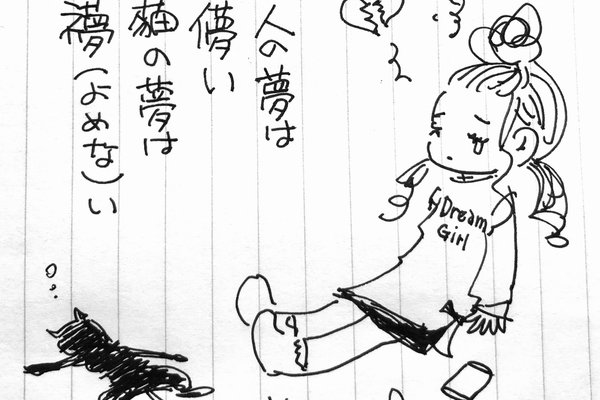 人の夢は
儚い
猫の夢は
(よめな)い
Dream
Girl